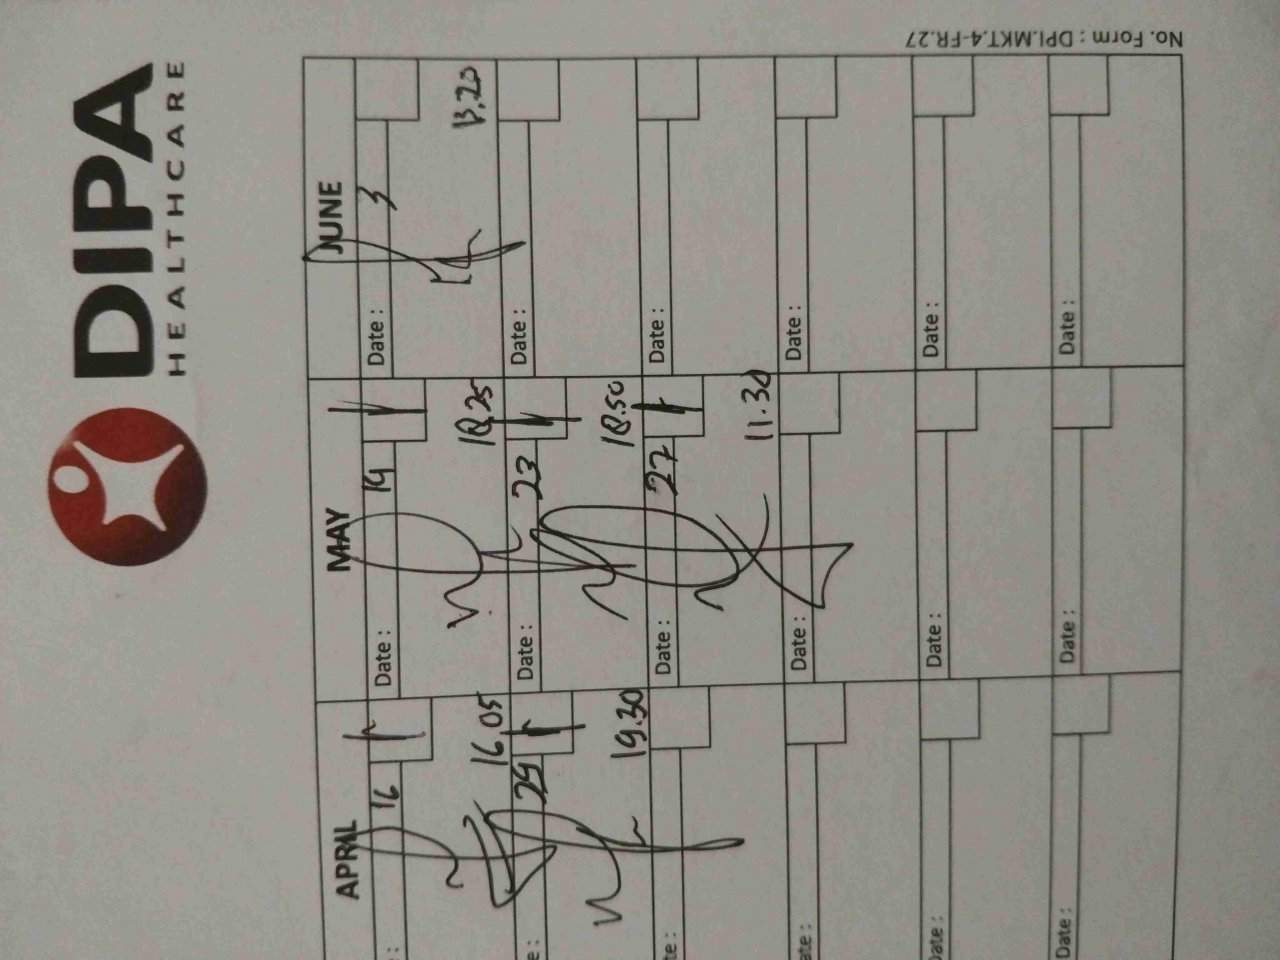 DIPA
HEALTHCARE
APRIL MAY JUNE
16 Date : 19 Date : 3
16.05 18.25 13.20
29 Date : 23 Date :
19.30 18.50
te : Date : 27 Date :
11.30
ate : Date : Date :
Date : Date : Date :
Date : Date : Date :
No. Form : DPI.MKT.4-FR.27